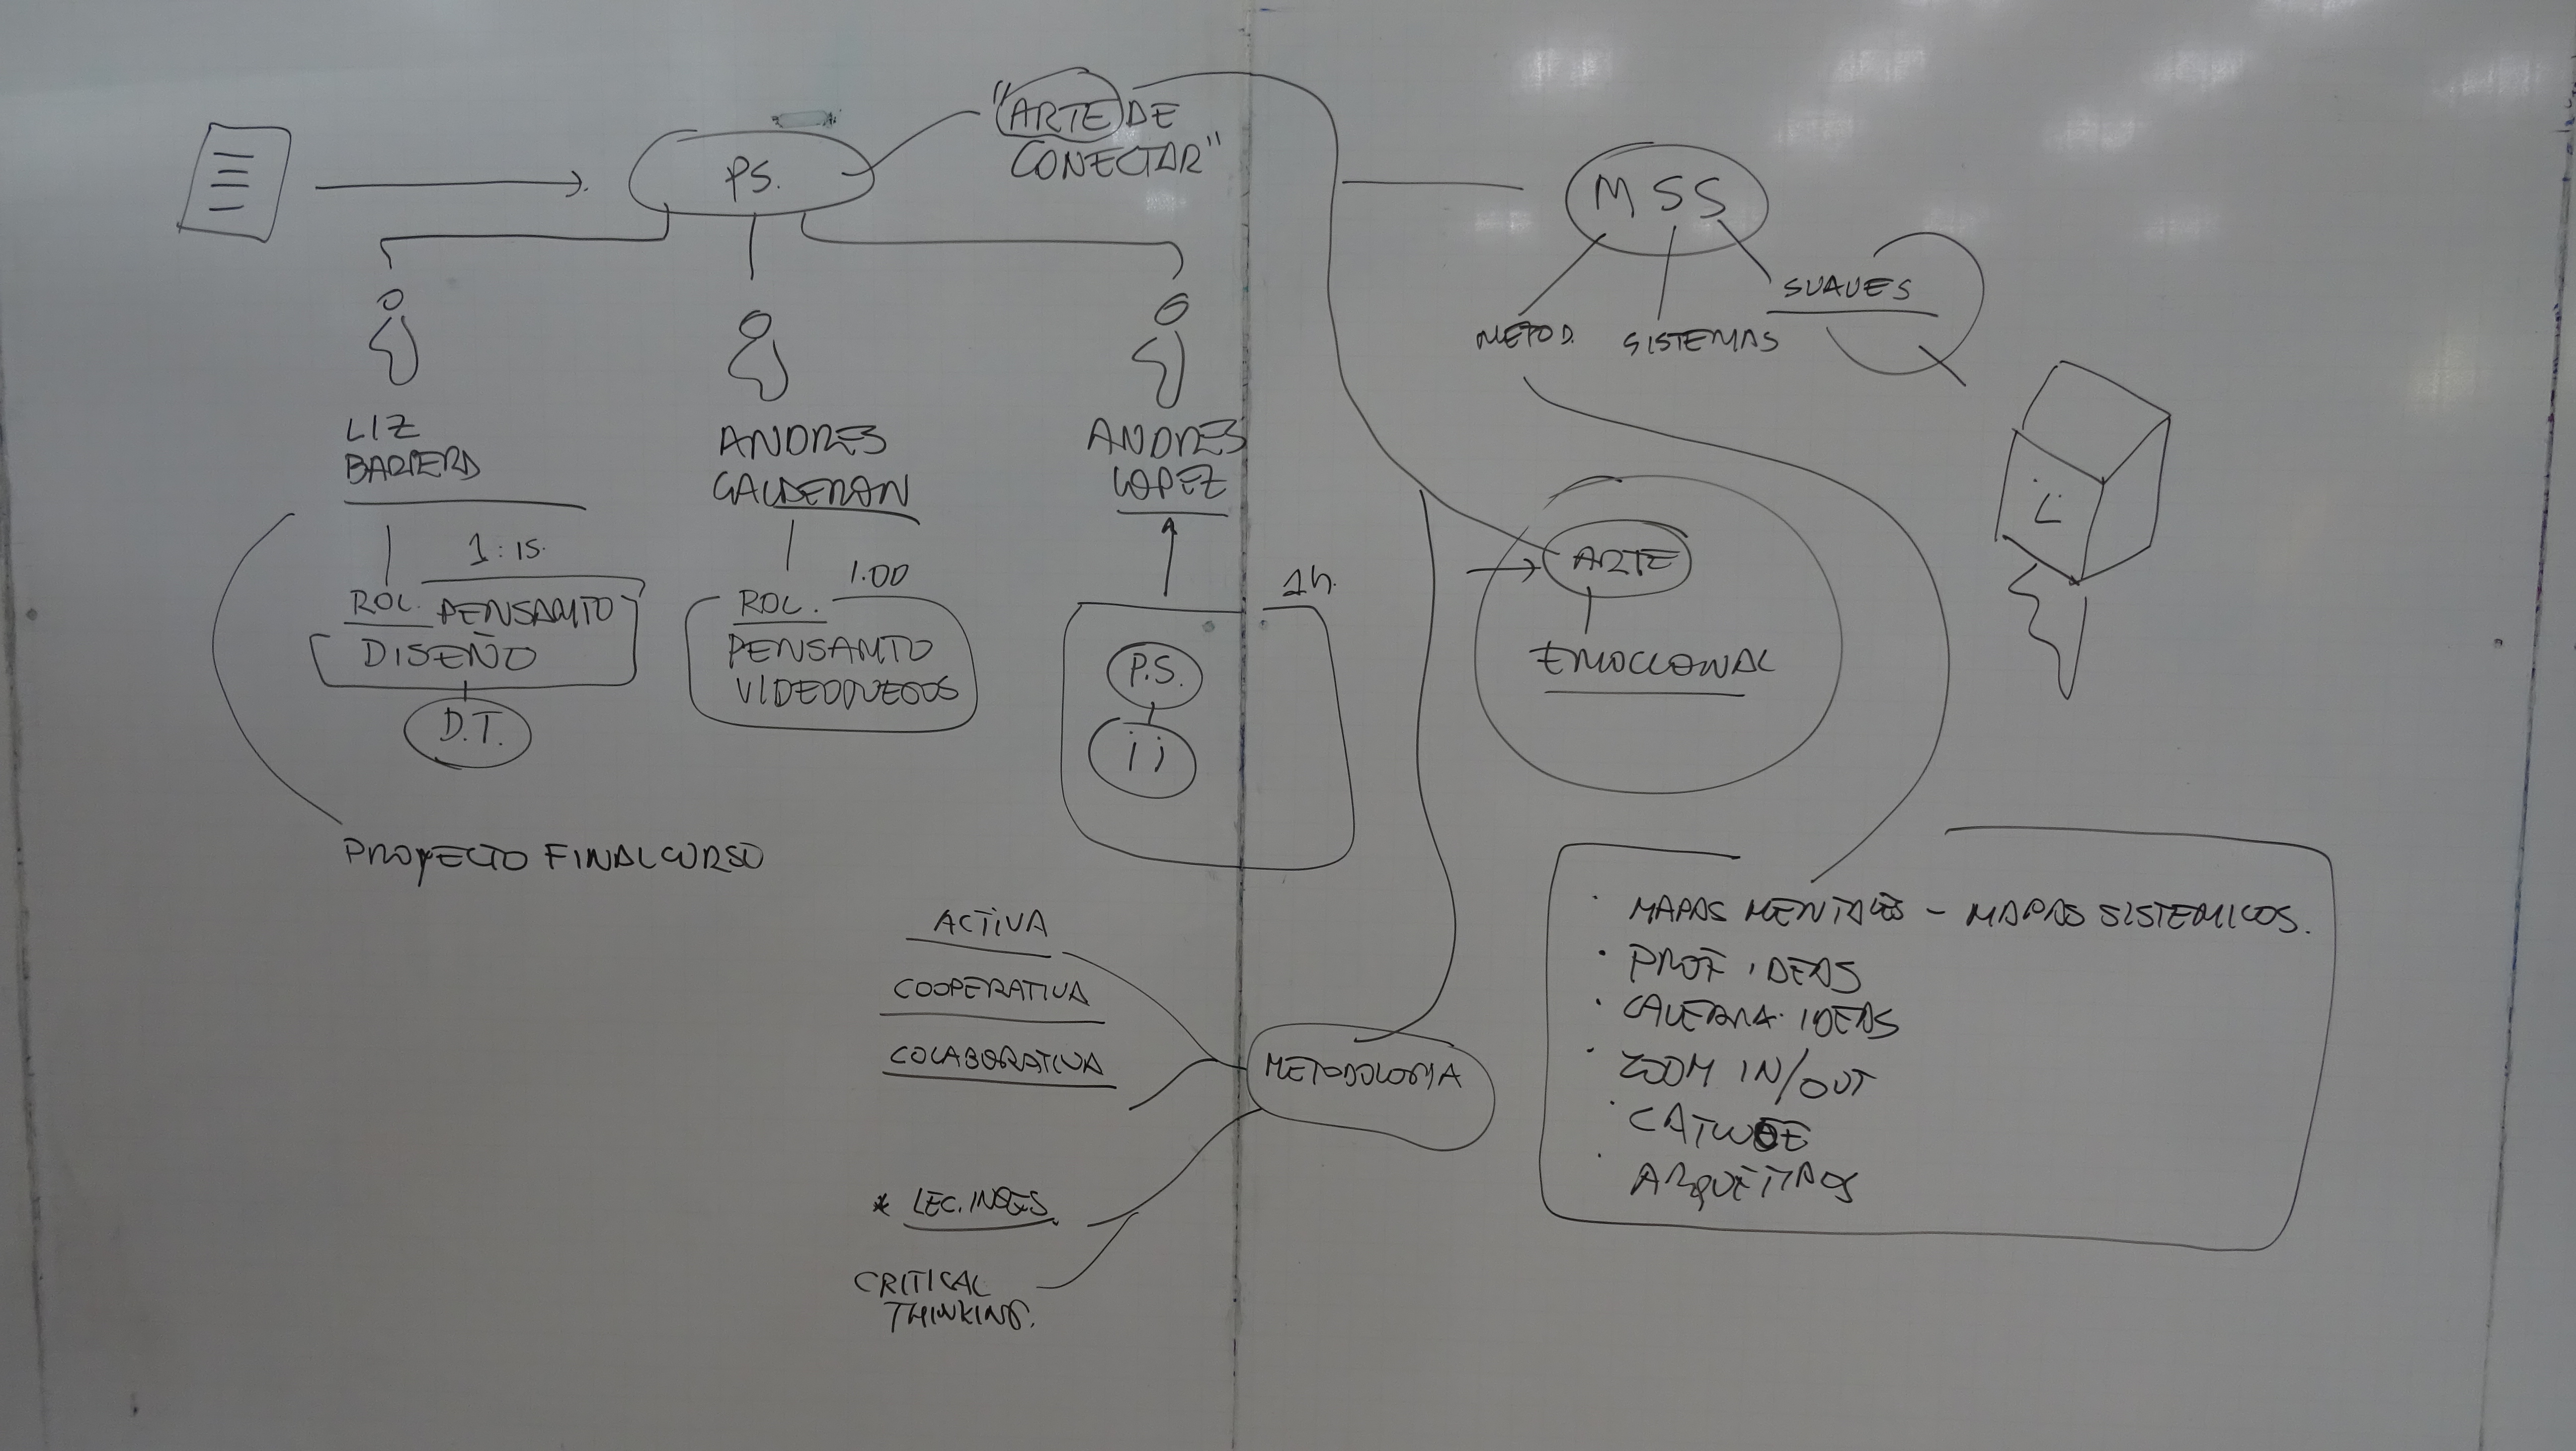 "ARTE DE
CONECTAR"
P.S.
LIZ
BARRERA
1:15.
ROL. PENSAMTO
DISEÑO
D.T.
PROYECTO FINAL CURSO
ANDRES
CALDERON
1.00
ROL.
PENSAMTO
VIDEOJUEGOS
ANDRES
LOPEZ
1h.
P.S.
MSS
METOD.
SISTEMAS
SUAVES
ARTE
EMOCIONAL
METODOLOGIA
ACTIVA
COOPERATIVA
COLABORATIVA
* LEC. INGES.
CRITICAL
THINKING.
· MAPAS MENTALES - MAPAS SISTEMICOS.
· PROF IDEAS
· CAVERNA. IDEAS
· ZOOM IN/OUT
· CATWOE
· ARQUETIPOS